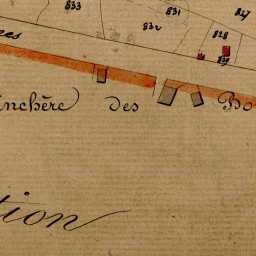 833 831 827
832 828
829
res
nchère des Bo
tion